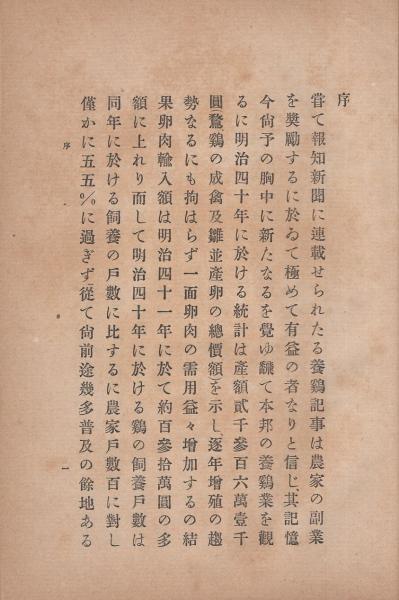 序
甞て報知新聞に連載せられたる養鷄記事は農家の副業
を奬勵するに於ゐて極めて有益の者なりと信じ、其記憶
今尙予の胸中に新たなるを覺ゆ飜て本邦の養鷄業を觀
るに明治四十年に於ける統計は產額貳千參百六萬壹千
圓(鶩鷄の成禽及雛並產卵の總價額)を示し、逐年增殖の趨
勢なるにも拘はらず一面卵肉の需用益々增加するの結
果卵肉輸入額は明治四十一年に於て約百參拾萬圓の多
額に上れり而して明治四十年に於ける鷄の飼養戶數は
同年に於ける飼養の戶數に比するに農家戶數百に對し
僅かに五五%に過ぎず、從て尙前途幾多普及の餘地ある
序
一